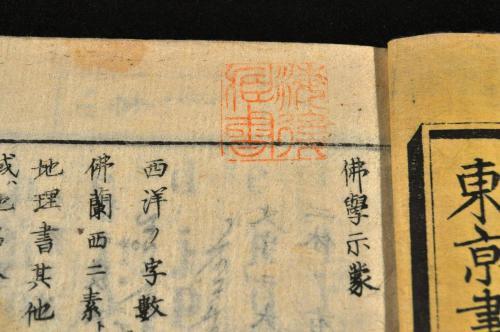 東京書
佛學示蒙
西洋ノ字數
佛蘭西ニ素
地理書其他
或ハ地名人